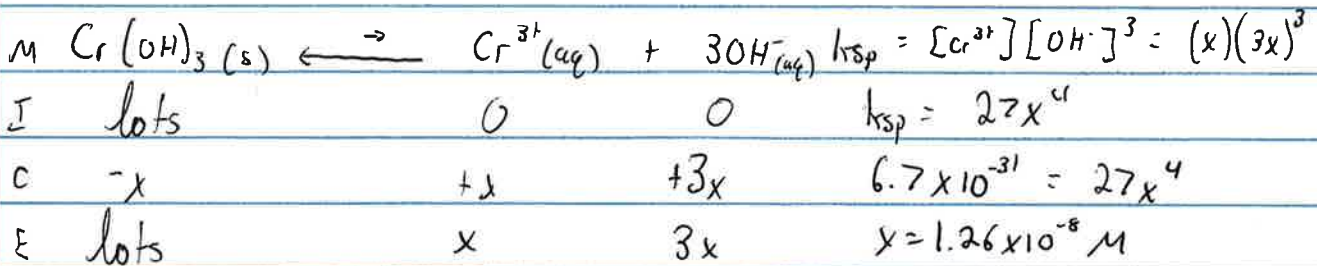 M Cr(OH)₃ (s) ⟵→ Cr³⁺(aq) + 3OH⁻(aq) ksp = [Cr³⁺][OH⁻]³ = (x)(3x)³
I lots 0 0 ksp = 27x⁴
C -x +x +3x 6.7x10⁻³¹ = 27x⁴
E lots x 3x x = 1.26x10⁻⁸ M